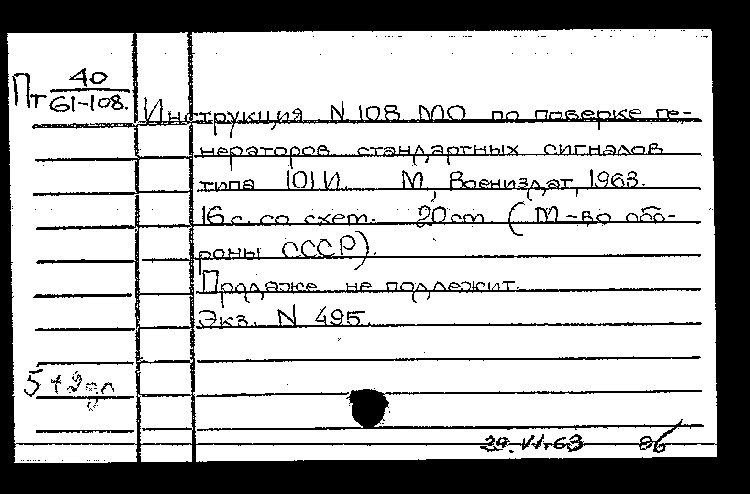 Пт 40
61-108.
Инструкция N 108 МО по поверке ге-
нераторов стандартных сигналов
типа 101И. М, Воениздат, 1963.
16 с. со схем. 20 см. (М-во обо-
роны СССР).
Продаже не подлежит.
Экз. N 495.
5+2
29.VI.63